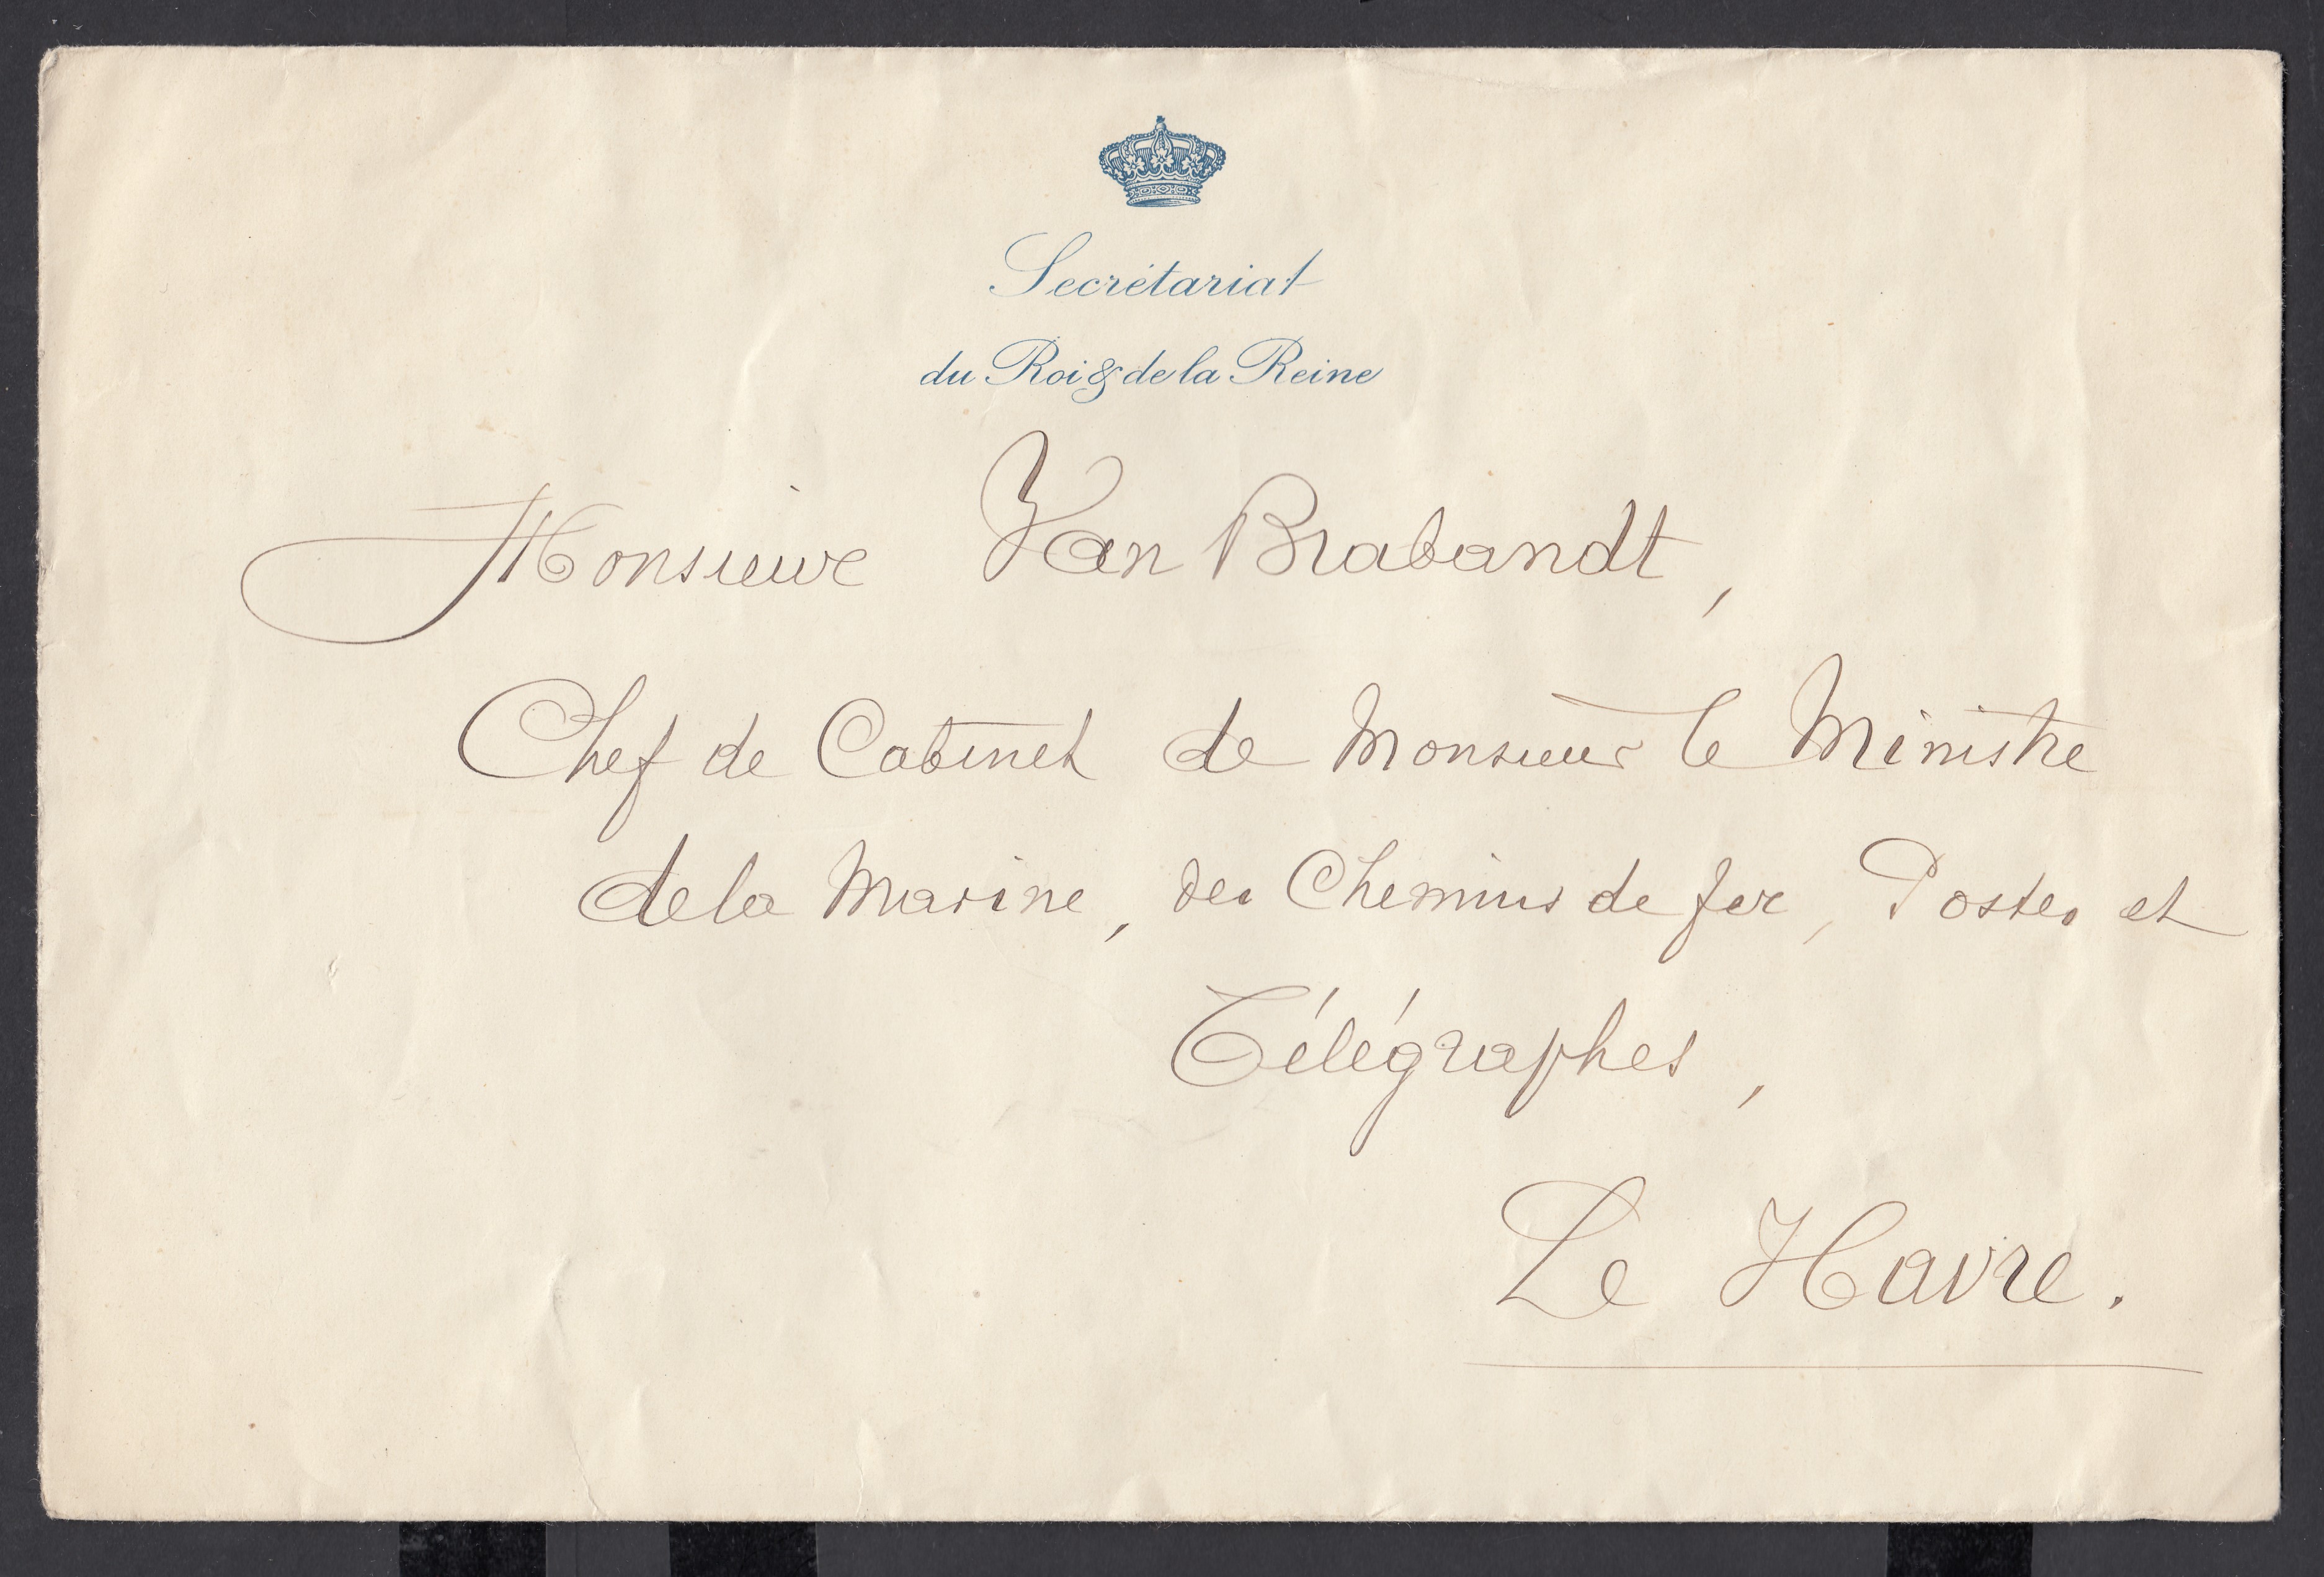 Secrétariat
du Roi & de la Reine
Monsieur Van Brabandt,
Chef de Cabinet de Monsieur le Ministre
de la Marine, des Chemins de fer, Postes et
Télégraphes,
Le Havre.